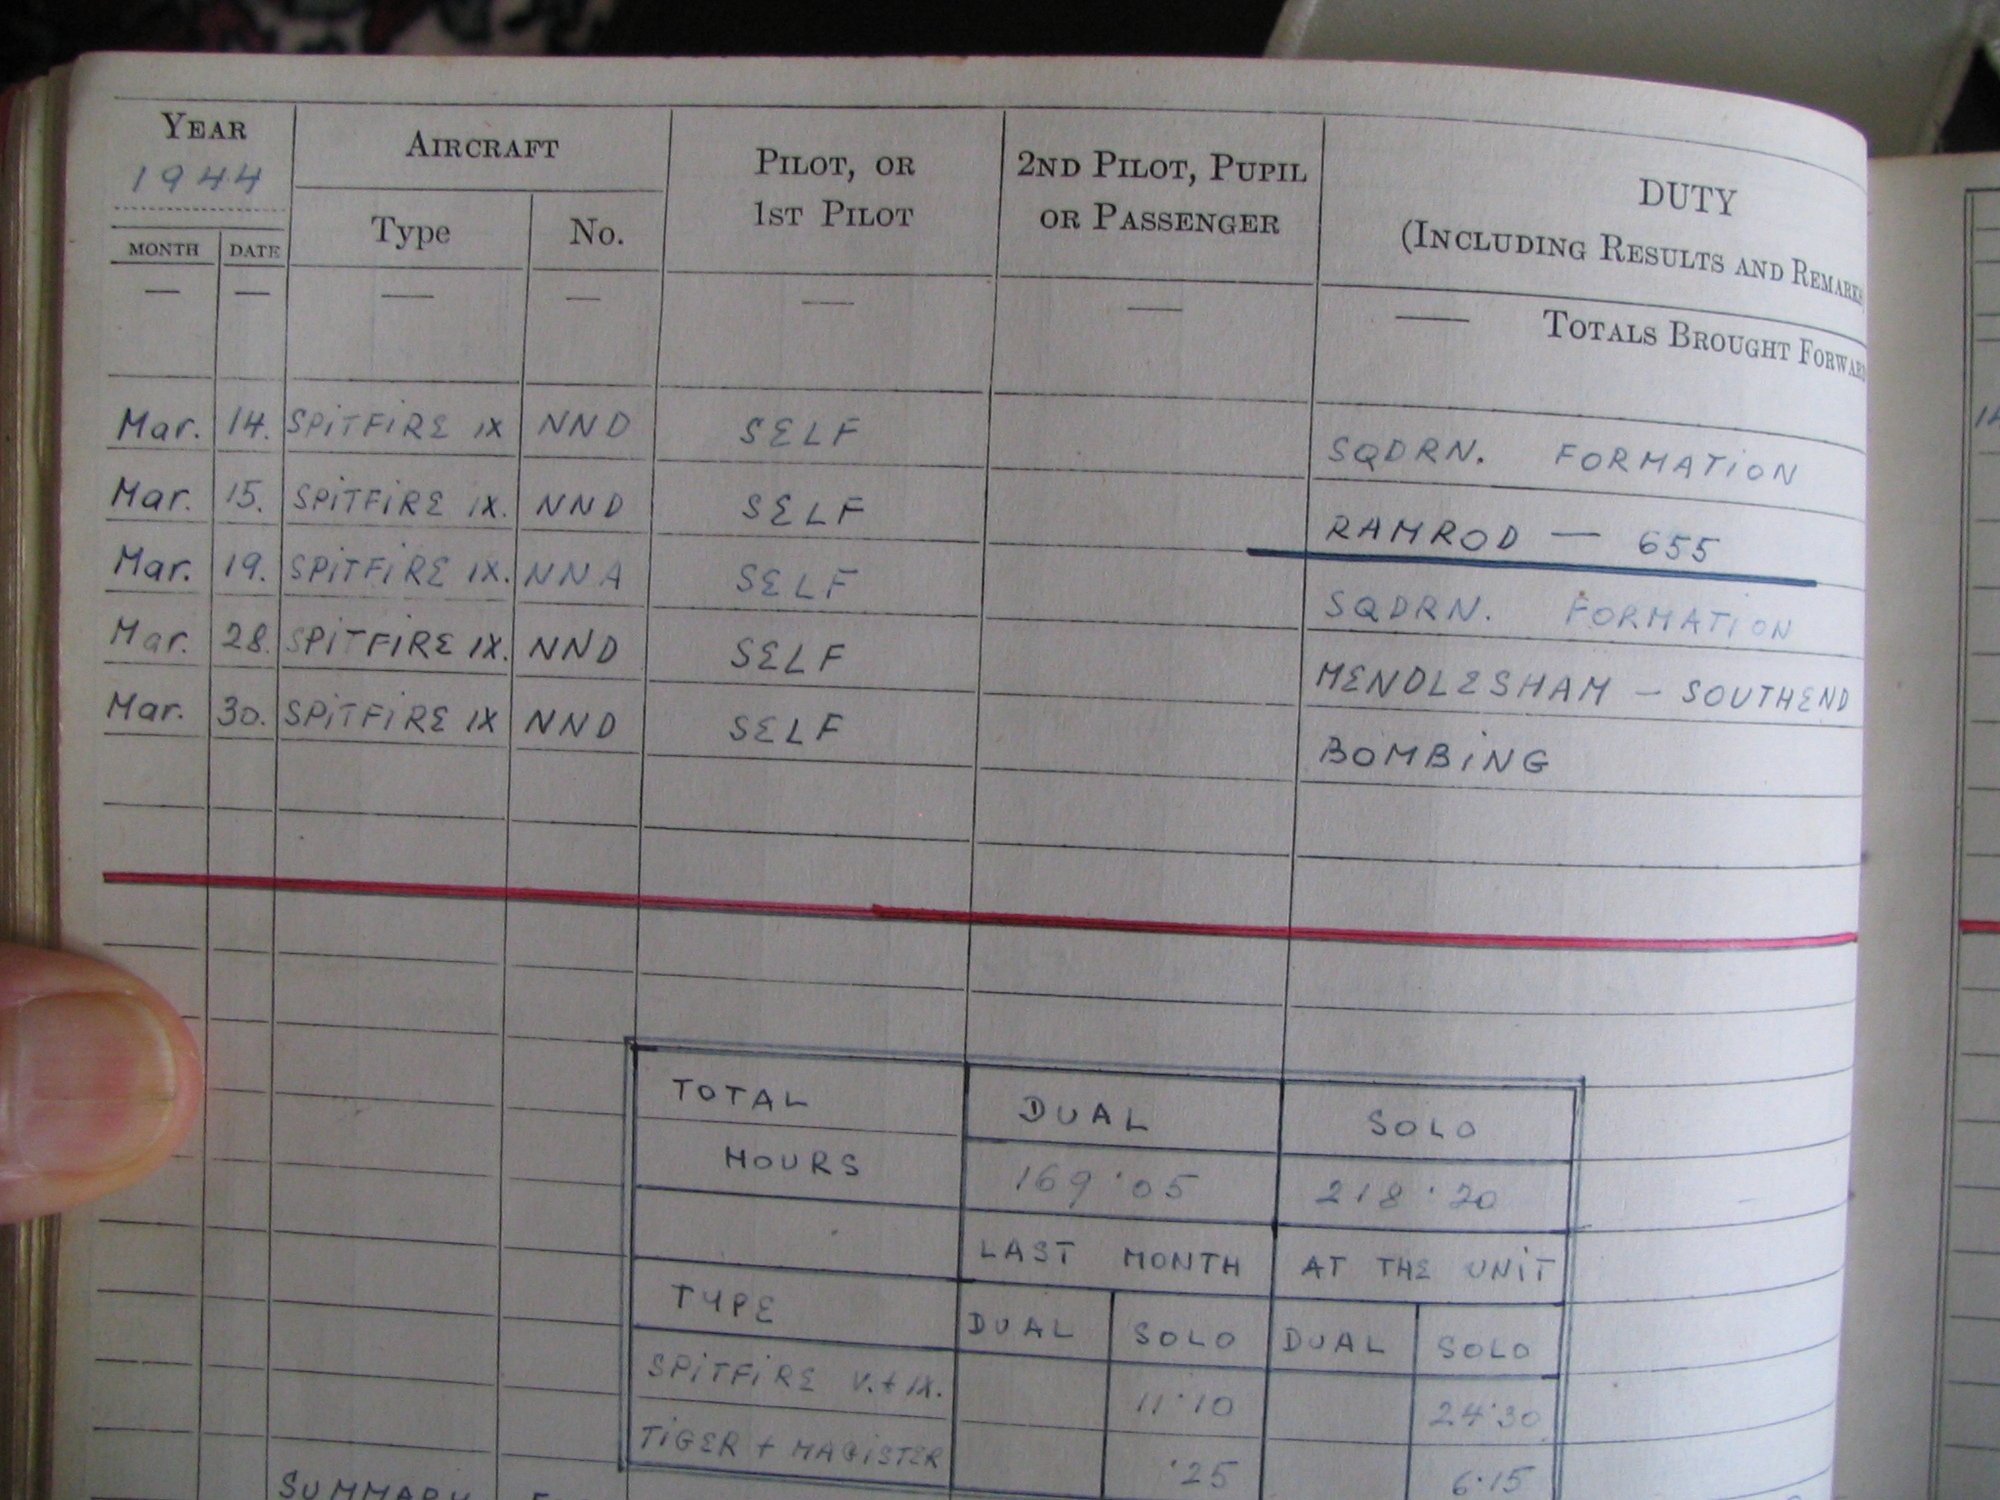 YEAR AIRCRAFT PILOT, OR 1ST PILOT 2ND PILOT, PUPIL OR PASSENGER DUTY
1944 (INCLUDING RESULTS AND REMARKS
MONTH DATE Type No.
— — — — — — — TOTALS BROUGHT FORWARD
Mar. 14. SPITFIRE IX NND SELF SQDRN. FORMATION
Mar. 15. SPITFIRE IX. NND SELF RAMROD — 655
Mar. 19. SPITFIRE IX. NNA SELF SQDRN. FORMATION
Mar. 28. SPITFIRE IX. NND SELF MENDLESHAM – SOUTHEND
Mar. 30. SPITFIRE IX NND SELF BOMBING
TOTAL HOURS DUAL SOLO
169·05 218·20
LAST MONTH AT THE UNIT
TYPE DUAL SOLO DUAL SOLO
SPITFIRE V.+ IX. 11·10 24·30
TIGER + MAGISTER ·25 6·15
SUMMARY